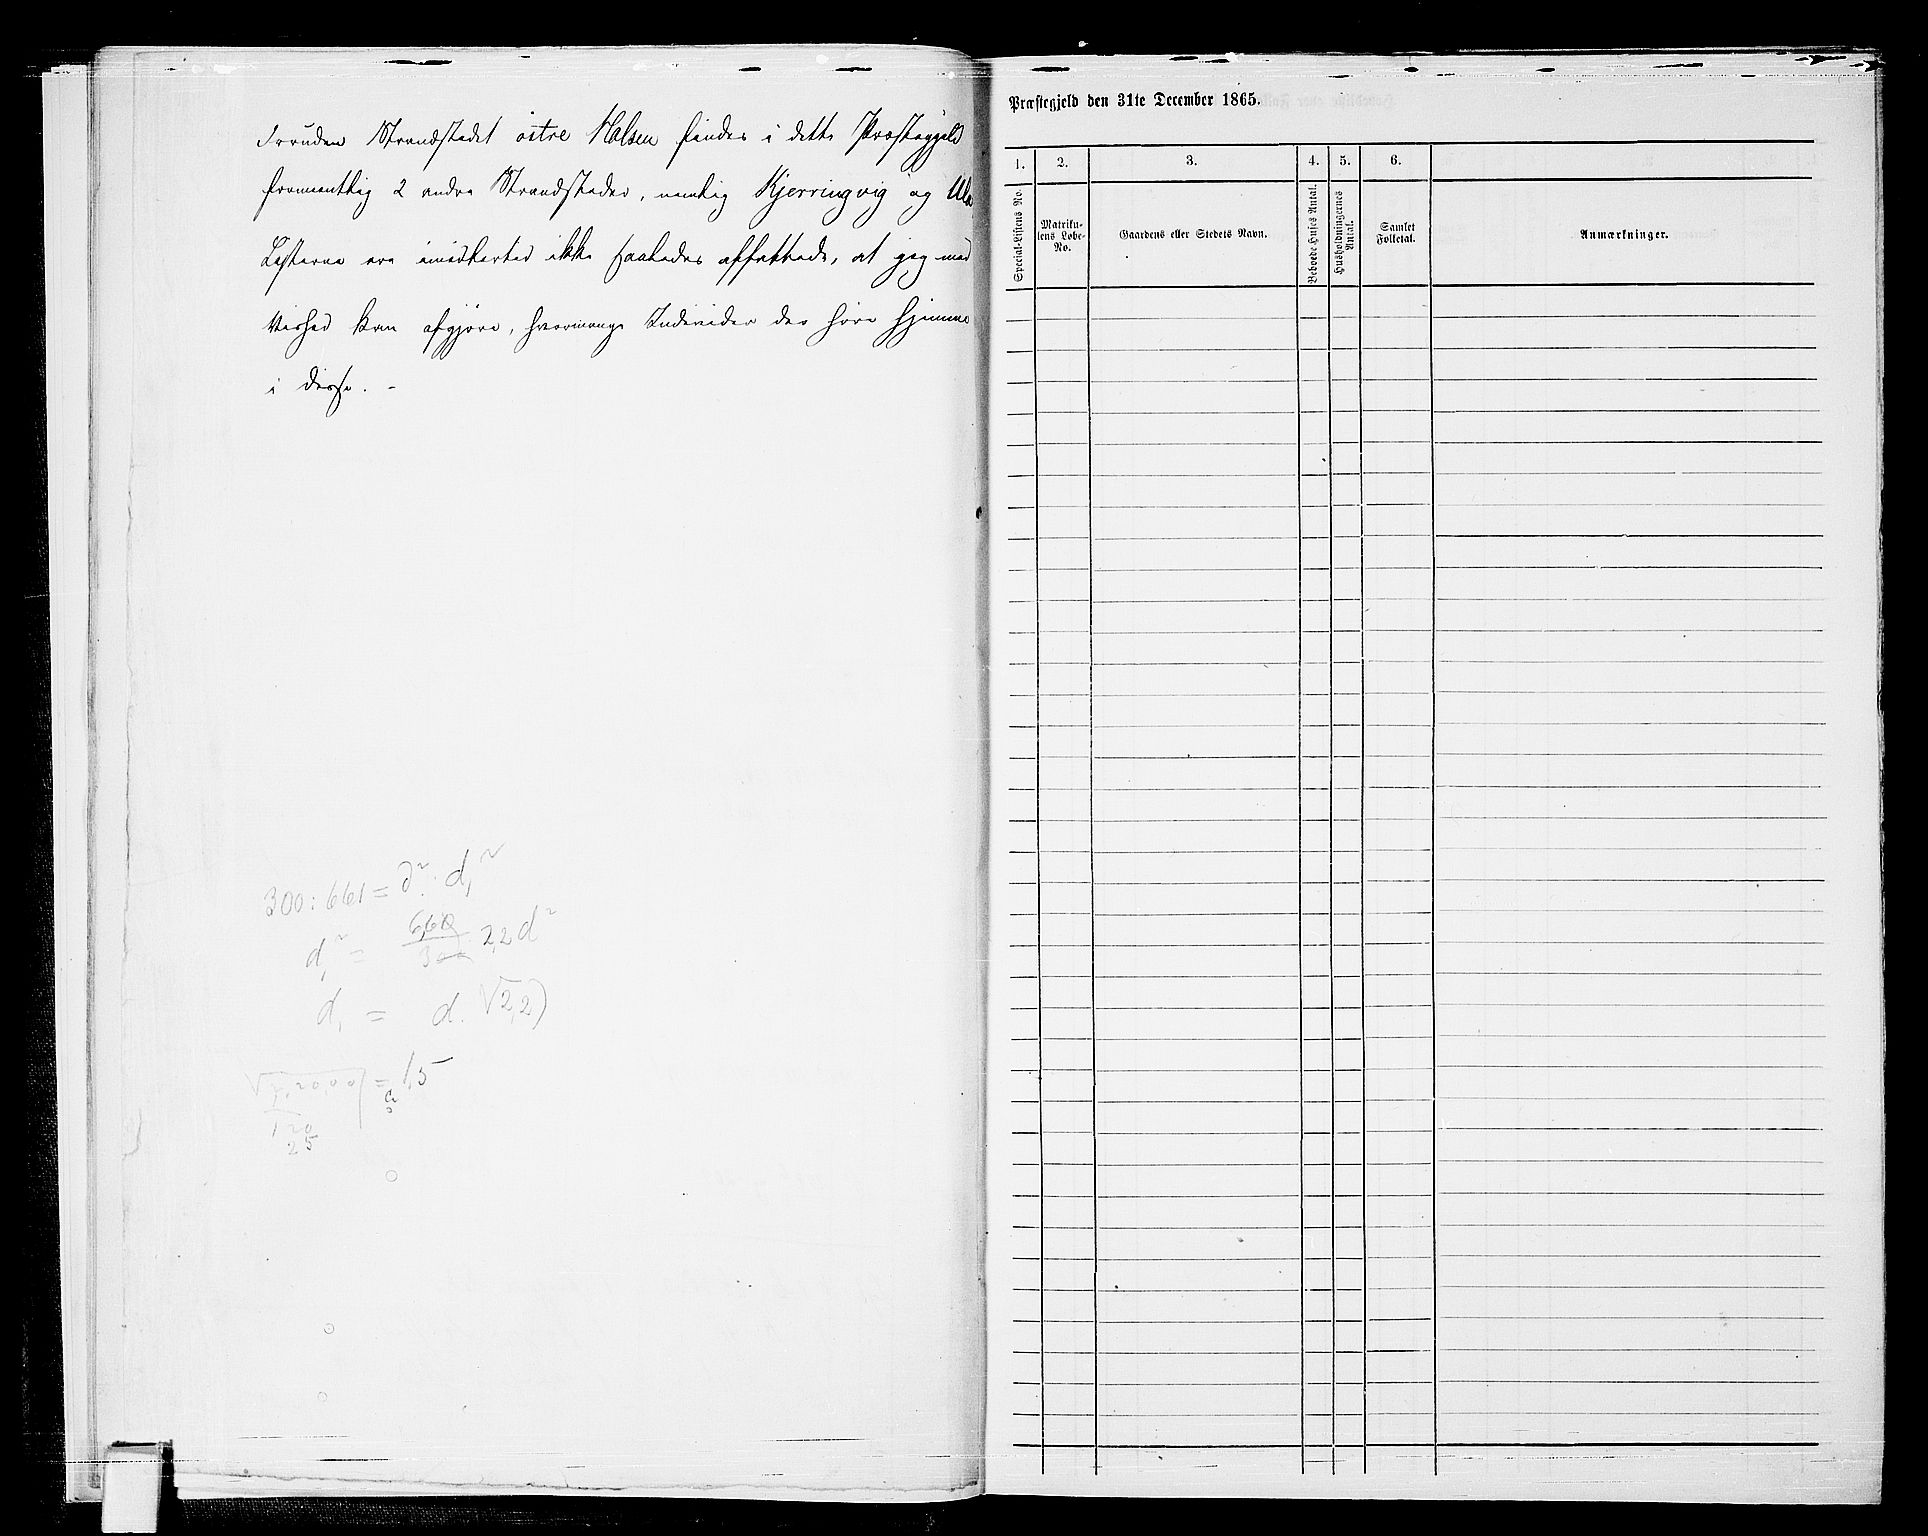 Foruden Strandstedet østre Halsen findes i dette Præstegjeld
formentlig 2 andre Strandsteder, nemlig Kjerringvig og Ula
Listerne ere imidlertid ikke saaledes affattede, at jeg med
Vished kan afgjøre, hvormange Individer der høre hjemme
i disse. -
300 : 661 = d² : d,²
d,² = 660/300 2,2 d²
d, = d. √2,2)
√2,20,00) = 1,5
120
25
Præstegjeld den 31te December 1865.
1. 2. 3. 4. 5. 6.
Special-Listens No.
Matriku-
lens Løbe-
No.
Gaardens eller Stedets Navn.
Beboede Huses Antal.
Husholdningernes
Antal.
Samlet
Folketal.
Anmærkninger.